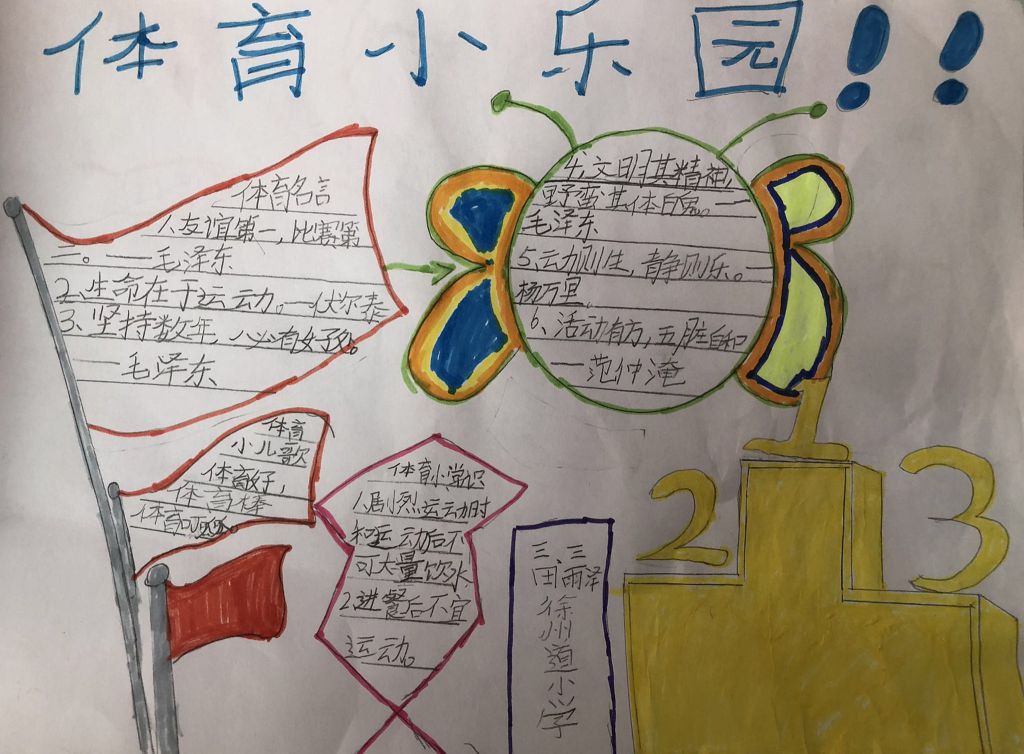 体育小乐园!!
体育名言
1、友谊第一,比赛第
二。——毛泽东
2、生命在于运动。—伏尔泰
3、坚持数年,必有好处。
——毛泽东
4、文明其精神,
野蛮其体自鬼。——
毛泽东
5、运动则生,静则乐。—
杨万里
6、活动有方,五脏自和
——范仲淹
体育
小儿歌
体育好,
体育棒
体育
体育小常识
1、剧烈运动时
和运动后不
可大量饮水
2、进餐后不宜
运动。
三、三
田雨泽
徐州道小学
1
2
3